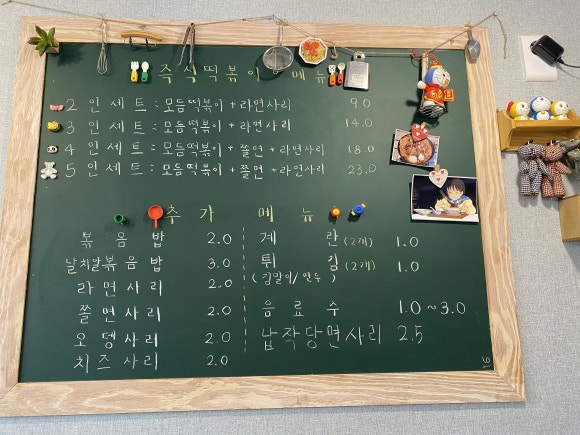 즉석떡볶이 메뉴
2인세트 : 모듬떡볶이 + 라면사리 9.0
3인세트 : 모듬떡볶이 + 라면사리 14.0
4인세트 : 모듬떡볶이 + 쫄면 + 라면사리 18.0
5인세트 : 모듬떡볶이 + 쫄면 + 라면사리 23.0
추가 메뉴
볶음밥 2.0
날치알볶음밥 3.0
라면사리 2.0
쫄면사리 2.0
오뎅사리 2.0
치즈사리 2.0
계란 (2개) 1.0
튀김 (2개) 1.0
(김말이/만두)
음료수 1.0~3.0
납작당면사리 2.5